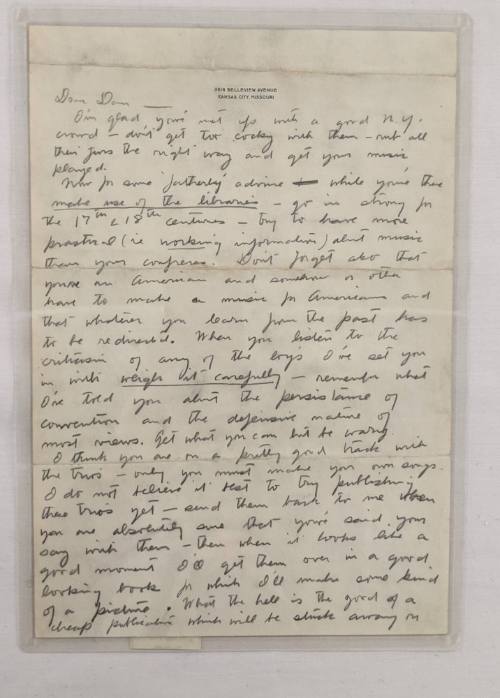 3616 BELLEVIEW AVENUE
KANSAS CITY, MISSOURI
Dear Dan —
I'm glad you've met up with a good N.Y.
crowd – don't get too cocky with them – rub all
their furs the right way and get your music
played.
Now for some 'fatherly' advice — while you're there
make use of the libraries – go in strong for
the 17th & 18th centuries – try to have more
practical (ie working information) about music
than your confreres. Don't forget also that
you're an American and somehow or other
have to make a music for Americans and
that whatever you learn from the past has
to be redirected. When you listen to the
criticism of any of the boys I've set you
in with weigh it carefully – remember what
I've told you about the persistance of
convention and the defensive nature of
most views. Get what you can but be wary.
I think you are on a pretty good track with
the trios – only you must make your own songs.
I do not believe it best to try publishing
these trios yet – send them back to me when
you are absolutely sure that you've said your
say with them – then when it looks like a
good moment I'll get them over in a good
looking book for which I'll make some kind
of a picture. What the hell is the good of a
cheap publication which will be stuck away on